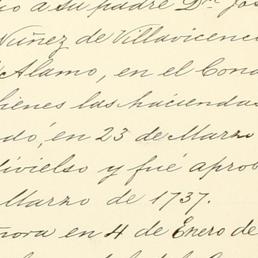 a su padre Dn. Jos
Nuñez de Villavicenc
Alamo, en el Cond
bienes las haciendas
dó, en 23 de Marzo
divielso y fué aprob
Marzo de 1737.
ñora en 4 de Enero de